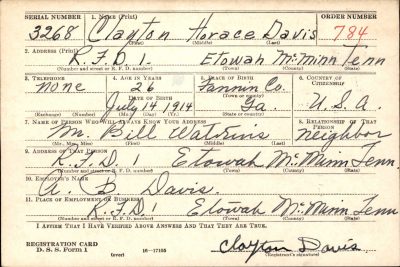 SERIAL NUMBER 1. NAME (Print) ORDER NUMBER
3268 Clayton Horace Davis 784
(First) (Middle) (Last)
2. ADDRESS (Print)
R.F.D. 1. Etowah McMinn Tenn
(Number and street or R. F. D. number) (Town) (County) (State)
3. TELEPHONE 4. AGE IN YEARS 5. PLACE OF BIRTH 6. COUNTRY OF CITIZENSHIP
none 26 Fannin Co.
DATE OF BIRTH (Town or county)
July 14 1914 Ga. U.S.A.
(Exchange) (Number) (Mo.) (Day) (Yr.) (State or country)
7. NAME OF PERSON WHO WILL ALWAYS KNOW YOUR ADDRESS 8. RELATIONSHIP OF THAT PERSON
Mr. Bill Watkins neighbor
(Mr., Mrs., Miss) (First) (Middle) (Last)
9. ADDRESS OF THAT PERSON
R.F.D. 1 Etowah McMinn Tenn.
(Number and street or R. F. D. number) (Town) (County) (State)
10. EMPLOYER'S NAME
A. B. Davis.
11. PLACE OF EMPLOYMENT OR BUSINESS
R.F.D. 1 Etowah McMinn Tenn
(Number and street or R. F. D. number) (Town) (County) (State)
I AFFIRM THAT I HAVE VERIFIED ABOVE ANSWERS AND THAT THEY ARE TRUE.
REGISTRATION CARD
D. S. S. Form 1 (over) 16—17105 Clayton Davis
(Registrant's signature)